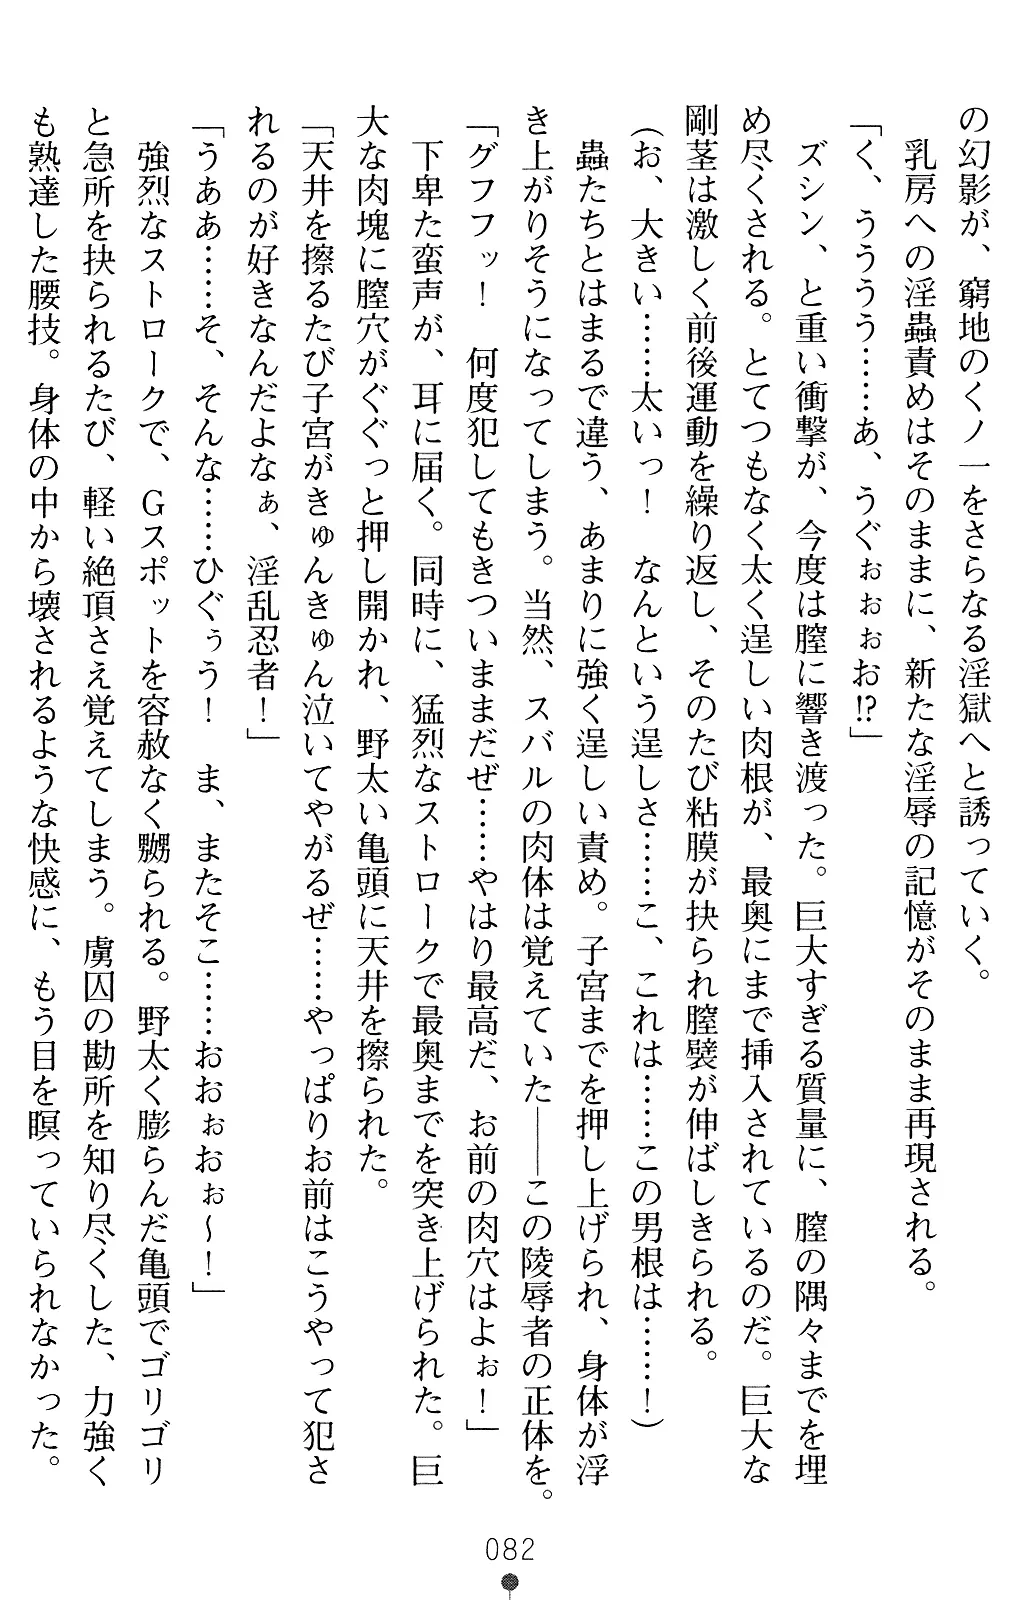 の幻影が、窮地のくノ一をさらなる淫獄へと誘っていく。
乳房への淫蟲責めはそのままに、新たな淫辱の記憶がそのまま再現される。
「く、うううう……あ、うぐぉぉぉお!?」
ズシン、と重い衝撃が、今度は膣に響き渡った。巨大すぎる質量に、膣の隅々までを埋
め尽くされる。とてつもなく太く逞しい肉根が、最奥にまで挿入されているのだ。巨大な
剛茎は激しく前後運動を繰り返し、そのたび粘膜が抉られ膣襞が伸ばしきられる。
(お、大きい……太いっ!　なんという逞しさ……こ、これは……この男根は……!)
蟲たちとはまるで違う、あまりに強く逞しい責め。子宮までを押し上げられ、身体が浮
き上がりそうになってしまう。当然、スバルの肉体は覚えていた――この陵辱者の正体を。
「グフフッ!　何度犯してもきついままだぜ……やはり最高だ、お前の肉穴はよぉ!」
下卑た蛮声が、耳に届く。同時に、猛烈なストロークで最奥までを突き上げられた。巨
大な肉塊に膣穴がぐぐっと押し開かれ、野太い亀頭に天井を擦られた。
「天井を擦るたび子宮がきゅんきゅん泣いてやがるぜ……やっぱりお前はこうやって犯さ
れるのが好きなんだよなぁ、淫乱忍者!」
「うああ……そ、そんな……ひぐぅう!　ま、またそこ……おおぉおぉ～!」
強烈なストロークで、Gスポットを容赦なく嬲られる。野太く膨らんだ亀頭でゴリゴリ
と急所を抉られるたび、軽い絶頂さえ覚えてしまう。虜囚の勘所を知り尽くした、力強く
も熟達した腰技。身体の中から壊されるような快感に、もう目を瞑っていられなかった。
082